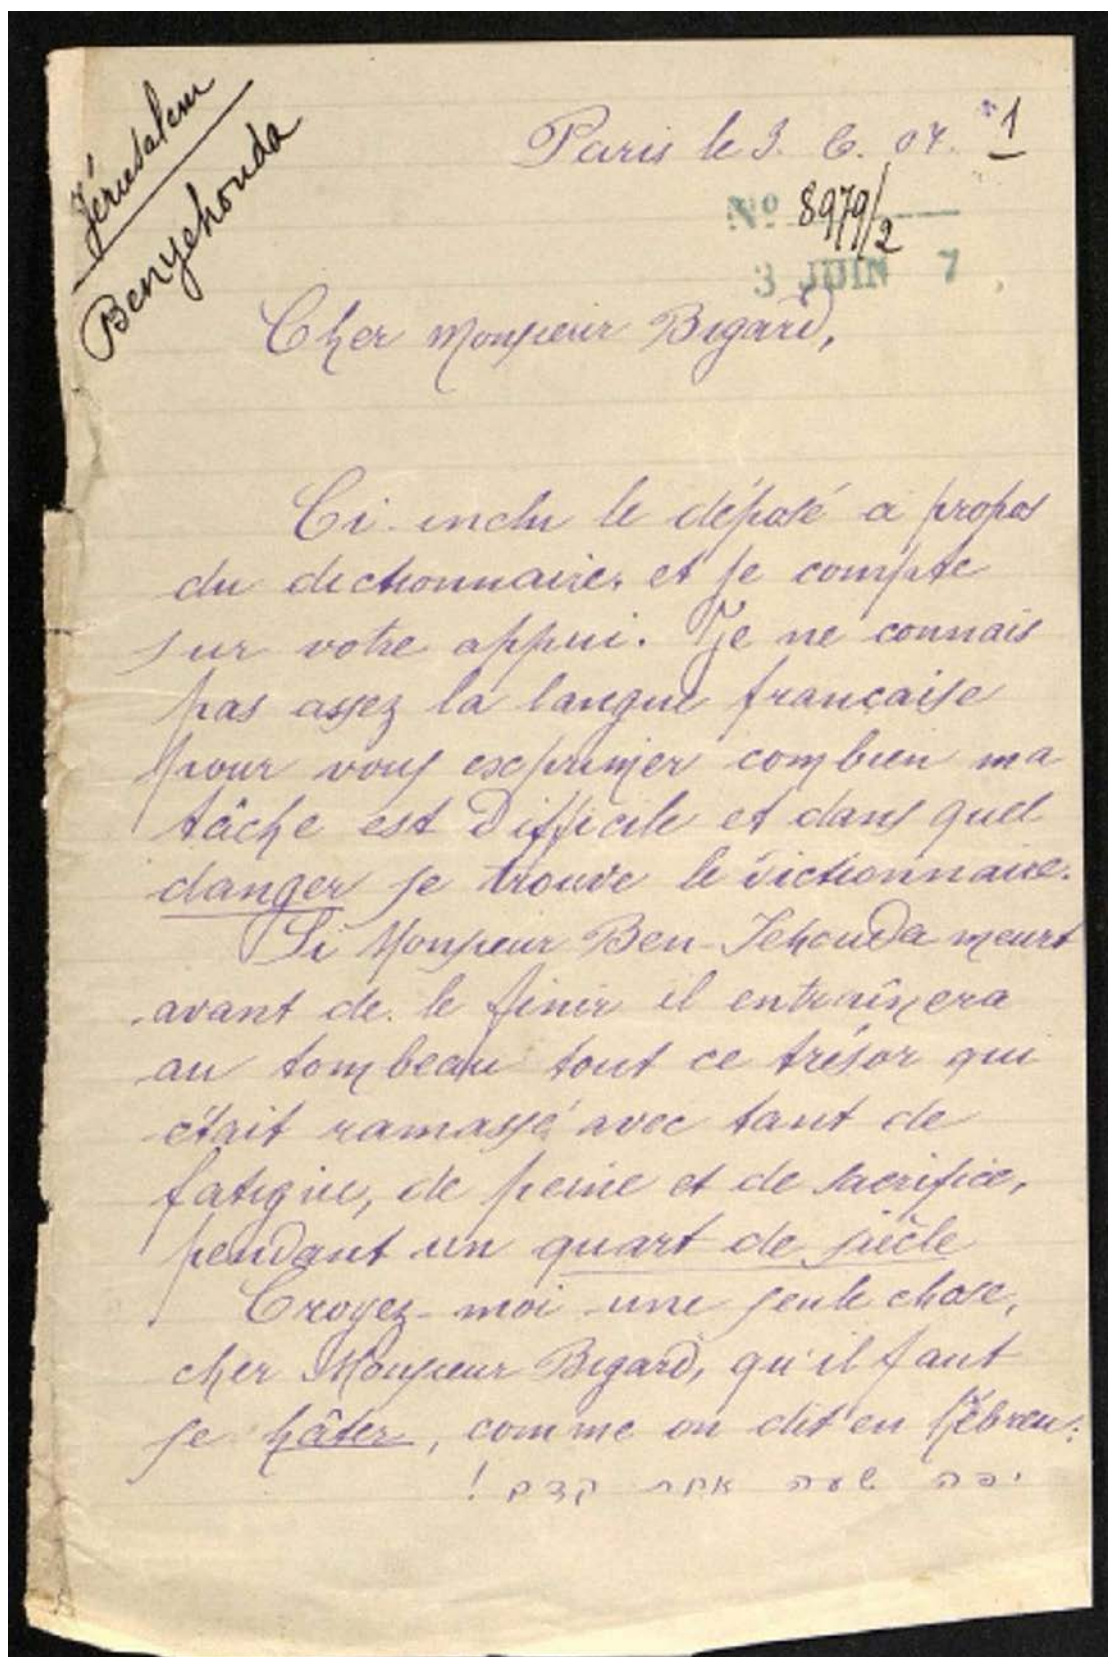 Jérusalem
Benyehouda
Paris le 3. 6. 07. 1
No 8979/2
3 JUIN 7
Cher Monsieur Bigard,
Ci-inclu le déposé a propos
du dictionnaire, et je compte
sur votre appui. Je ne connais
pas assez la langue française
pour vous exprimer combien ma
tâche est difficile et dans quel
danger se trouve le dictionnaire.
Si Monsieur Ben-Jehouda meurt
avant de le finir il entraînera
au tombeau tout ce trésor qui
était ramassé avec tant de
fatigue, de peine et de sacrifice,
pendant un quart de siècle
Croyez-moi une seule chose,
cher Monsieur Bigard, qu'il faut
se hâter, comme on dit en hébreu:
יפה שעה אחת קדם!